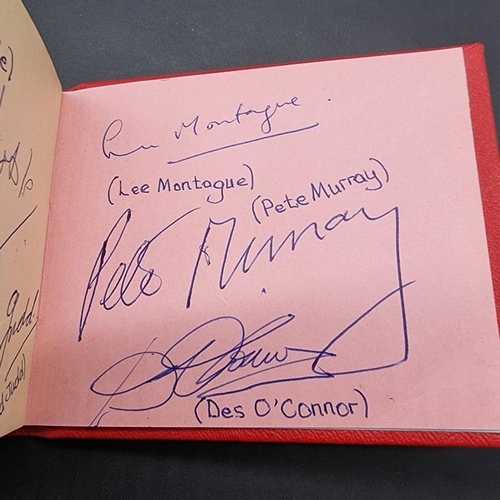 Lee Montague
(Lee Montague)
(Pete Murray)
Pete Murray
(Des O'Connor)